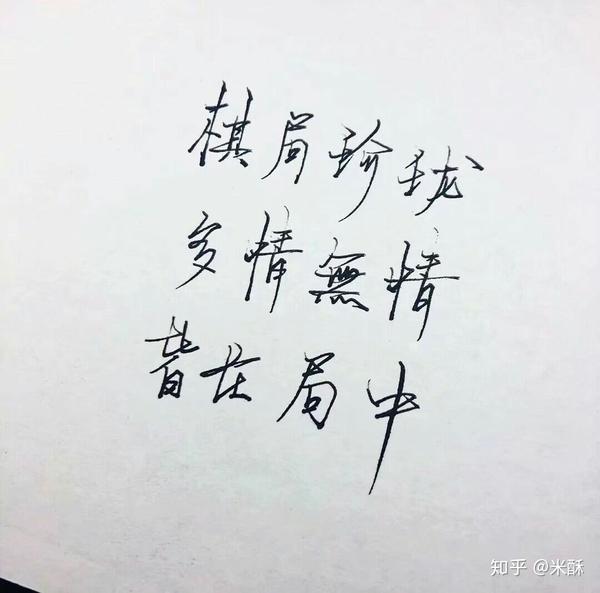 棋局珍珑
多情無情
皆在局中
知乎 @米酥